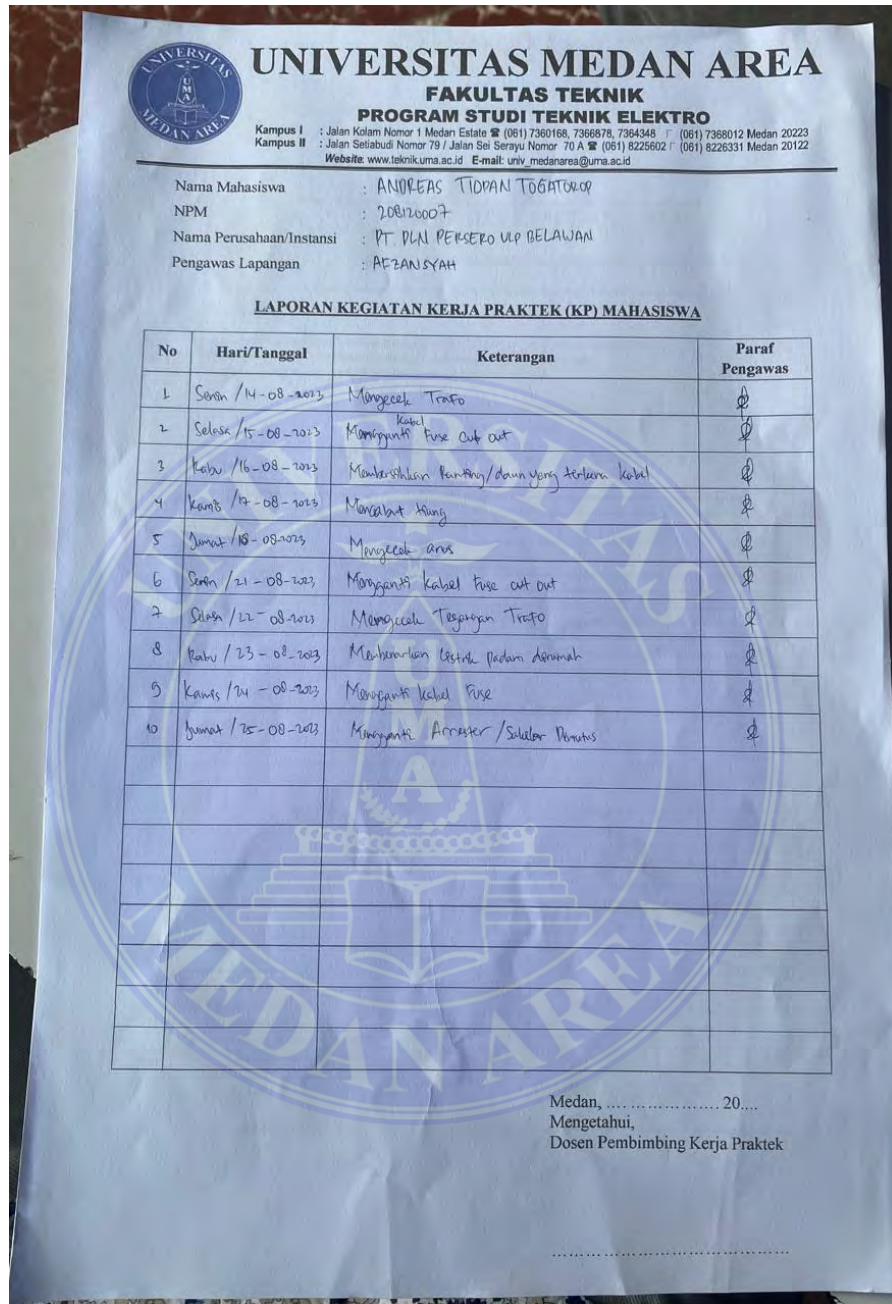 UNIVERSITAS MEDAN AREA
FAKULTAS TEKNIK
PROGRAM STUDI TEKNIK ELEKTRO
Kampus I : Jalan Kolam Nomor 1 Medan Estate ☎ (061) 7360168, 7366878, 7364348 (061) 7368012 Medan 20223
Kampus II : Jalan Setiabudi Nomor 79 / Jalan Sei Serayu Nomor 70 A ☎ (061) 8225602 (061) 8226331 Medan 20122
Website: www.teknik.uma.ac.id E-mail: univ_medanarea@uma.ac.id
UNIVERSITAS MEDAN AREA
UMA
Nama Mahasiswa : ANDREAS TIOPAN TOGATOROP
NPM : 208120007
Nama Perusahaan/Instansi : PT. PLN PERSERO ULP BELAWAN
Pengawas Lapangan : AFZANSYAH
LAPORAN KEGIATAN KERJA PRAKTEK (KP) MAHASISWA
No Hari/Tanggal Keterangan Paraf Pengawas
1 Senin /14-08-2023 Mengecek Trafo
2 Selasa /15-08-2023 Mengganti Kabel Fuse cut out
3 Rabu /16-08-2023 Membersihkan Ranting/daun yang terkena kabel
4 Kamis /17-08-2023 Mencabut tiang
5 Jumat /18-08-2023 Mengecek arus
6 Senin /21-08-2023 Mengganti Kabel Fuse cut out
7 Selasa /22-08-2023 Mengecek Tegangan Trafo
8 Rabu /23-08-2023 Membenarkan listrik padam dirumah
9 Kamis /24-08-2023 Mengganti Kabel Fuse
10 Jumat /25-08-2023 Mengganti Arrester / Pemutus
UNIVERSITAS MEDAN AREA
UMA
Medan, .................... 20....
Mengetahui,
Dosen Pembimbing Kerja Praktek